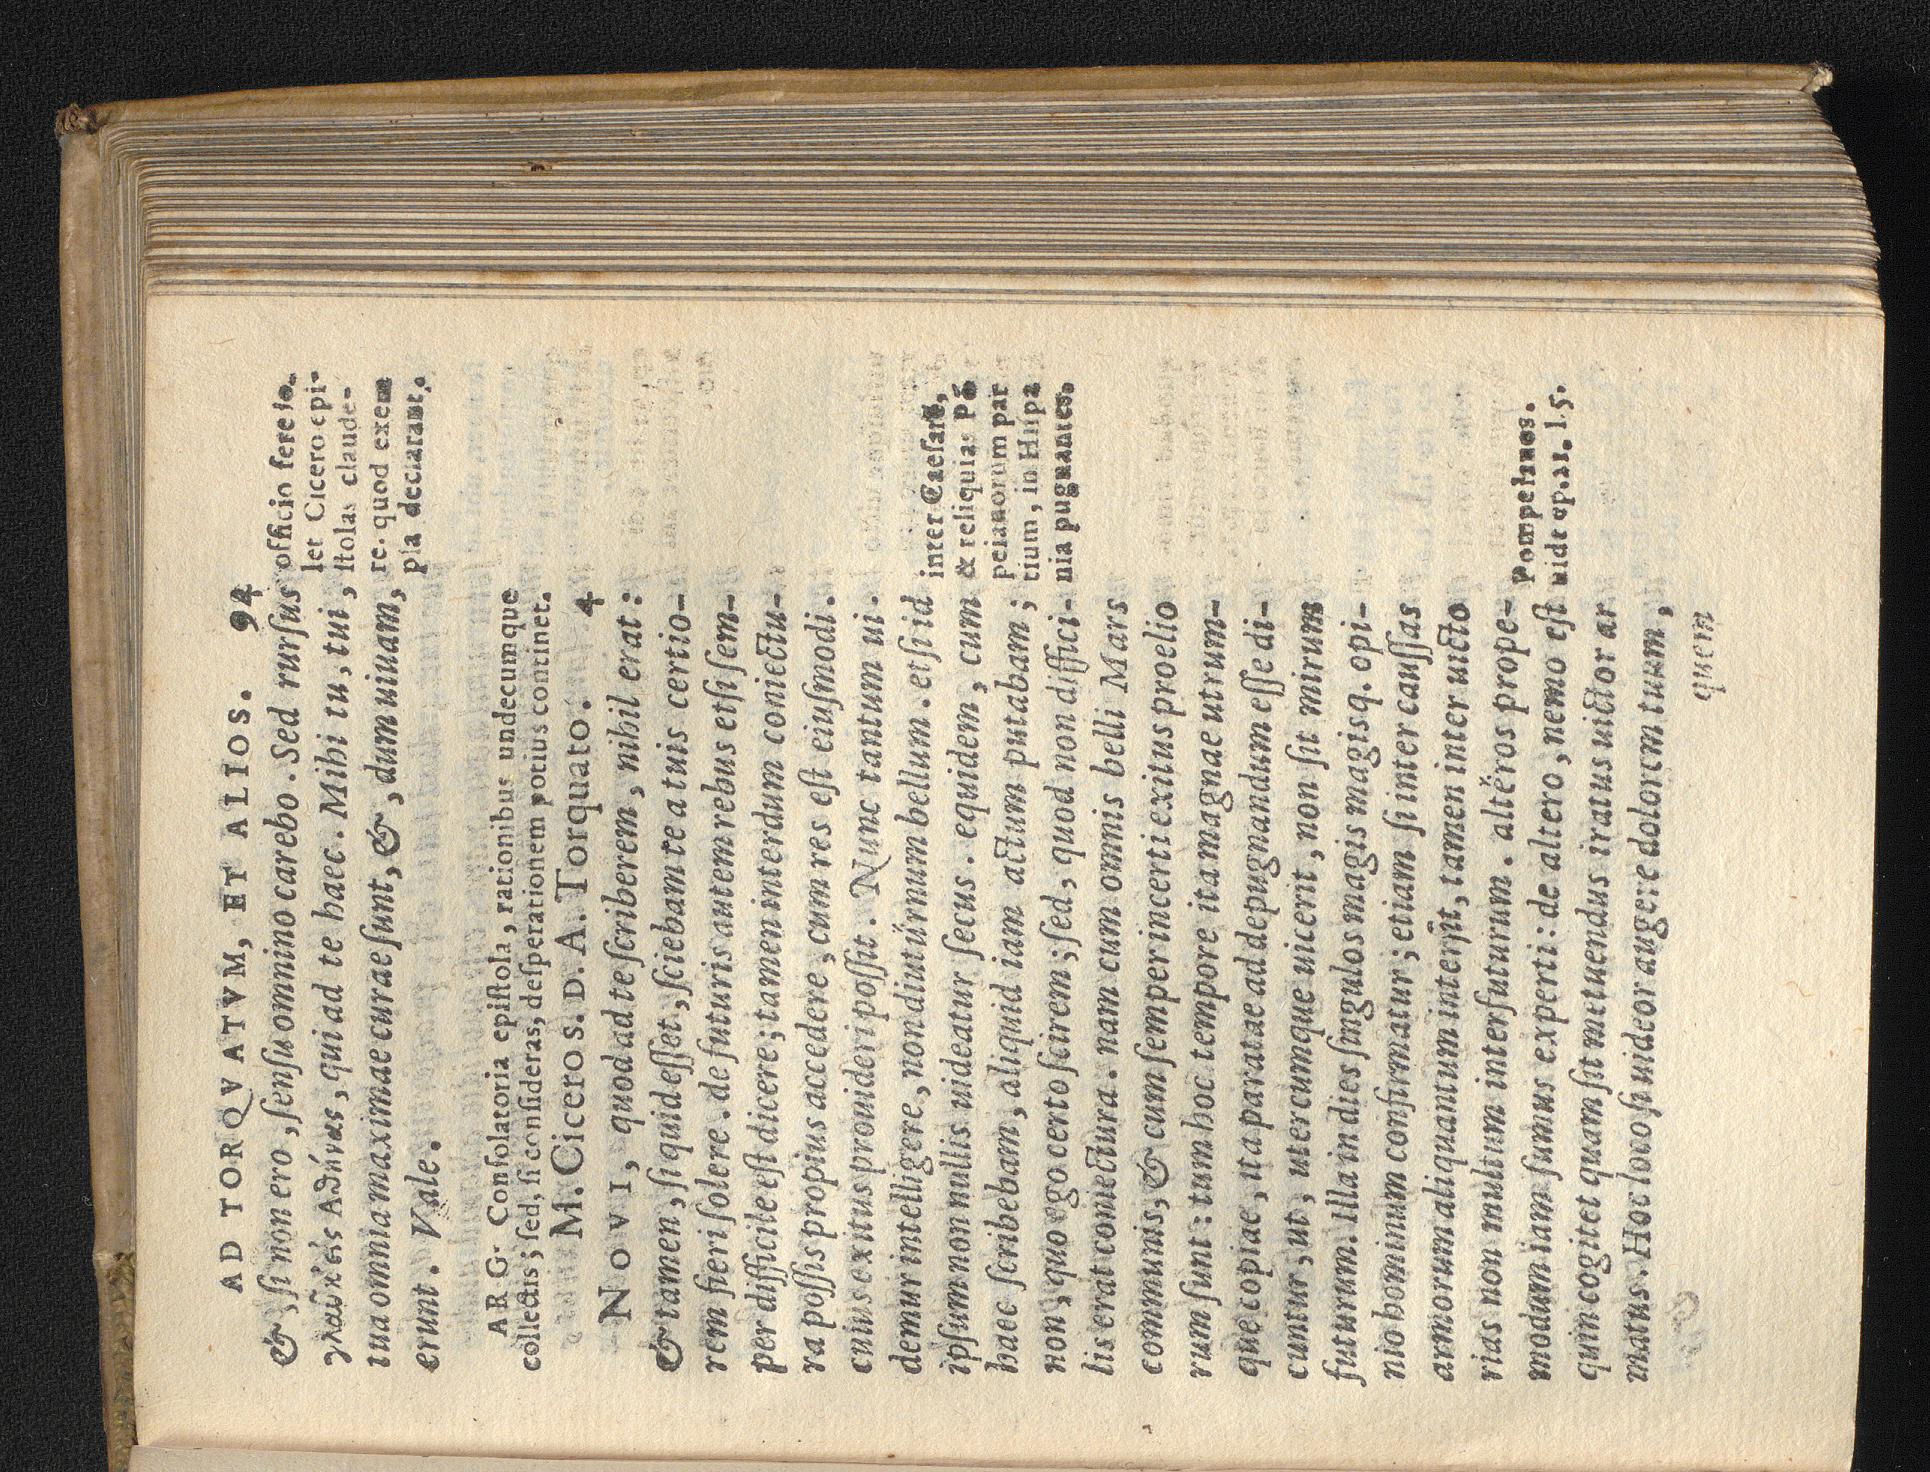 AD TORQVATVM, ET ALIOS. 94
&, si non ero, sensu omnino carebo. Sed rursus
γλαῦκ' εἰς Ἀθήνας, qui ad te haec. Mihi tu, tui,
tua omnia maximae curae sunt, &, dum uiuam,
erunt. Vale.
officio fere so-
let Cicero epi-
stolas claude-
re. quod exem
pla declarant.
ARG. Consolatoria epistola, rationibus undecumque
collectis; sed, si consideras, desperationem potius continet.
M. Cicero s. D. A. Torquato. 4
NOVI, quod ad te scriberem, nihil erat:
& tamen, si quid esset, sciebam te a tuis certio-
rem fieri solere. de futuris autem rebus etsi sem-
per difficile est dicere; tamen interdum coniectu-
ra possis propius accedere, cum res est eiusmodi.
cuius exitus prouideri possit. Nunc tantum ui.
demur intelligere, non diutúrnum bellum. etsi id
ipsum nonnullis uideatur secus. equidem, cum
haec scribebam, aliquid iam actum putabam;
non, quo ego certo scirem; sed, quod non diffici-
lis erat coniectura. nam cum omnis belli Mars
communis, & cum semper incerti exitus proelio
rum sunt: tum hoc tempore ita magnae utrum-
que copiae, ita paratae ad depugnandum esse di-
cuntur, ut, utercumque uicerit, non sit mirum
futurum. Illa in dies singulos magis magisq. opi-
nio hominum confirmatur; etiam si inter caussas
armorum aliquantum intersit, tamen inter uicto
rias non multum interfuturum. altéros prope-
modum iam sumus experti: de altero, nemo est
quin cogitet quam sit metuendus iratus uictor ar
matus. Hoc loco si uideor augere dolorem tuum,
inter Caesare,
& reliquias Pō
peianorum par
tium, in Hispa
nia pugnantes.
Pompeianos.
uide ep. 21. l. 5.
quem